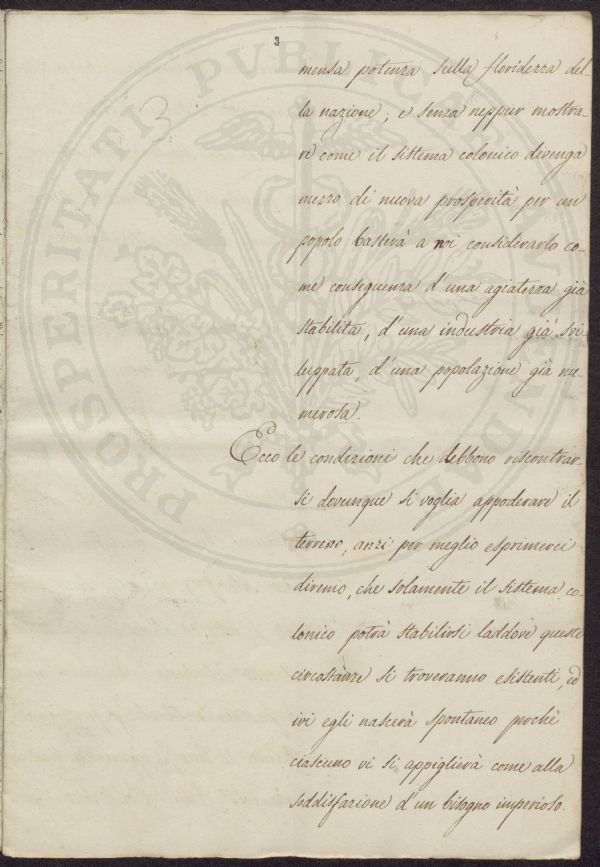 3
mensa potenza sulla floridezza del-
la nazione; e senza neppur mostra-
re come il sistema colonico divenga
mezzo di nuova prosperità per un
popolo basterà a noi considerarlo co-
me conseguenza d'una agiatezza già
stabilita, d'una industria già svi
luppata, d'una popolazione già nu-
merosa.
Ecco le condizioni che debbono riscontrar-
si dovunque si voglia appoderare il
terreno, anzi per meglio esprimerci
diremo, che solamente il sistema co-
lonico potrà stabilirsi laddove queste
circostanze si troveranno esistenti, ed
ivi egli nascerà spontaneo perchè
ciascuno vi si appiglierà come alla
soddisfazione d'un bisogno imperioso.
PROSPERITATI PUBLICAE